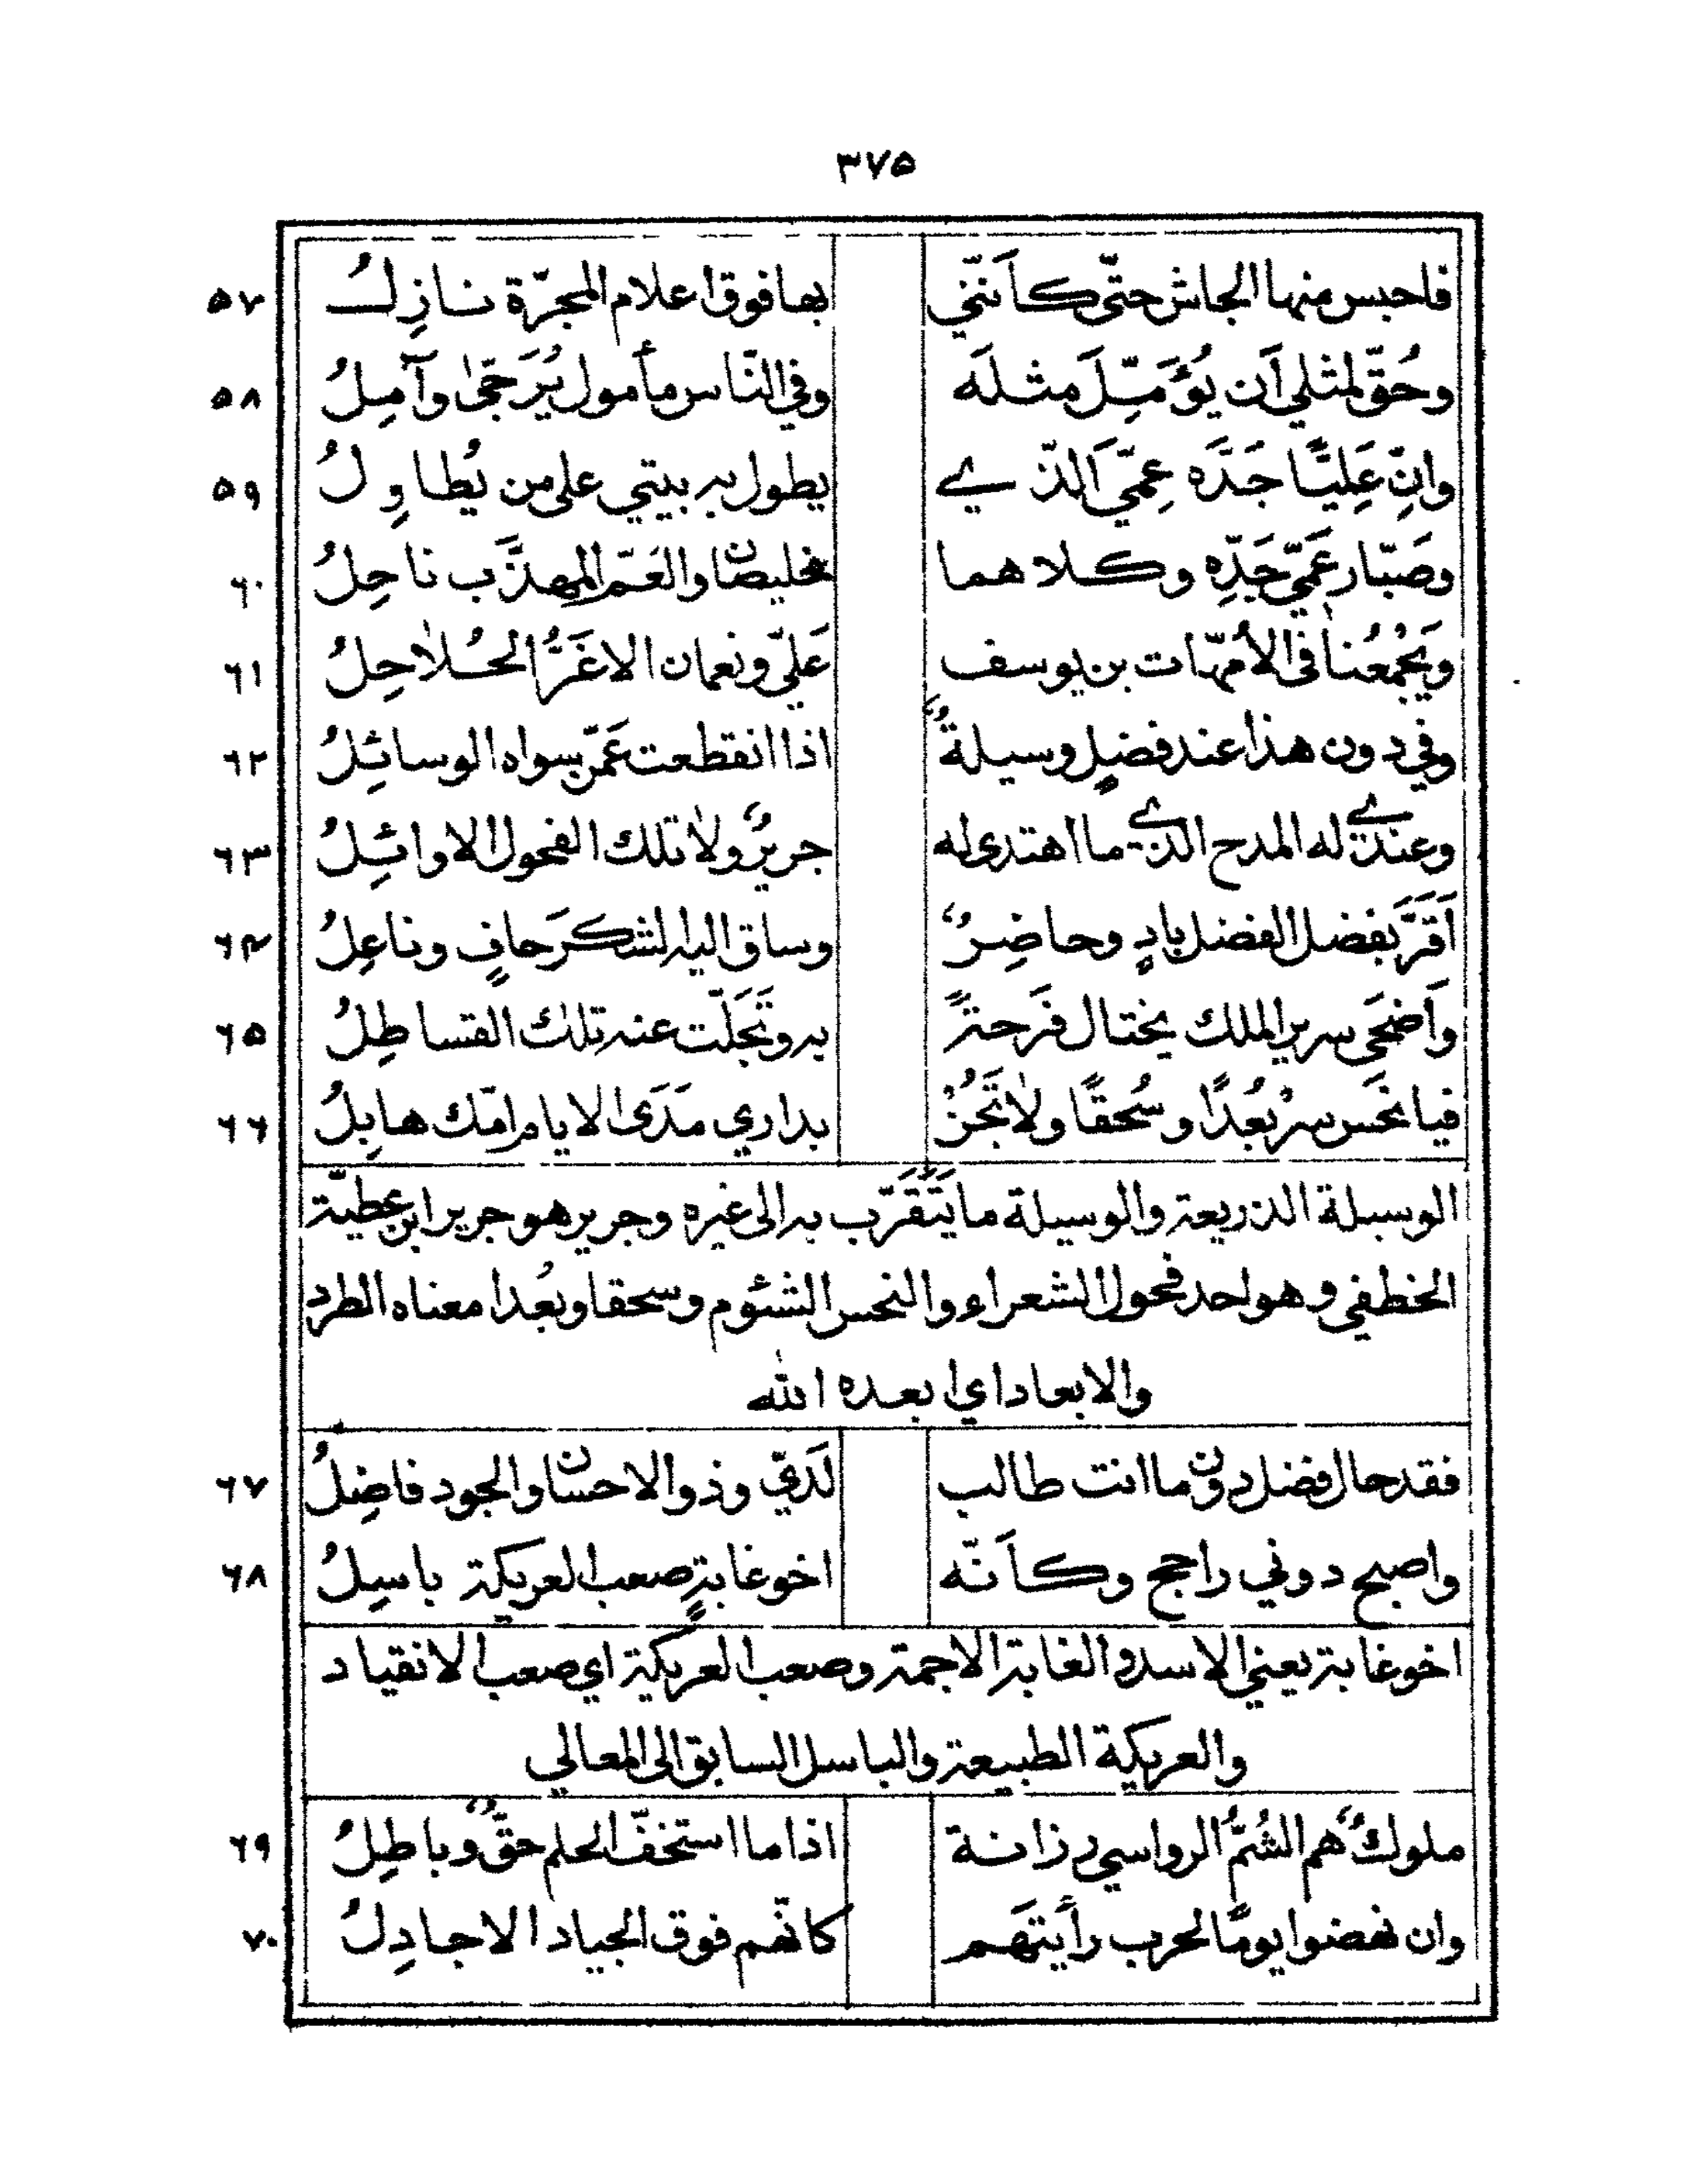 ٣٧٥
فاحبس منها الجاش حتّى كأَنّني بها فوق اعلام المجرّة نازِلُ ٥٧
وحُقّ لمثلي أَن يُؤَمِّلَ مثلَه وفي النّاس مأمول يُرَجّىٰ وآمِلُ ٥٨
وانّ عَلِيًّا جَدَّه عِمّيَ الّذي يطول به بيتي على من يُطاوِلُ ٥٩
وصَبّار عَمّي جَدِّه وكلاهما خليصان والعَمّ المهذَّب ناحِلُ ٦٠
ويَجْمعُنا في الأمّهات بن يوسف عَليّ ونعمان الاغَرُّ الحُلاحِلُ ٦١
وفي دون هذا عند فضلٍ وسيلةٌ اذا انقطعت عَمّن سواه الوسائِلُ ٦٢
وعندي له المدح الذي ما اهتدى له جريرٌ ولا تلك الفحول الاوائِلُ ٦٣
أَقَرَّ بفضل الفضل بادٍ وحاضِرٌ وساق اليه الشكرَ حافٍ وناعِلُ ٦٤
وأَضحَى سرير الملك يختال فَرحةً به وتَجَلّت عنه تلك القساطِلُ ٦٥
فيا نحَس سرْ بُعدًا وسُحقًا ولا تَجُزْ بداري مَدَى الايام امّك هابِلُ ٦٦
الوسيلة الذريعة والوسيلة ما يَتَقَرّب به الى غيره وجرير هو جرير ابن عطيّة
الخطفي وهو احد فحول الشعراء والنحس الشئوم وسحقا وبُعدا معناه الطرد
والابعاد اي ابعده الله
فقد حال فضل دون ما انت طالب لَدَيّ وذو الاحسان والجود فاضِلُ ٦٧
واصبح دوني راجح وكأَنّه اخو غابةٍ صعب العريكة باسِلُ ٦٨
اخو غابة يعني الاسد والغابة الاجمة وصعب العريكة اي صعب الانقياد
والعريكة الطبيعة والباسل السابق الى المعالي
ملوكٌ هم الشُمُّ الرواسي رزانة اذا ما استخفّ الحلم حقٌّ وباطِلُ ٦٩
وان نهضوا يومًا لحرب رأَيتَهم كانّهم فوق الجياد الاجادِلُ ٧٠